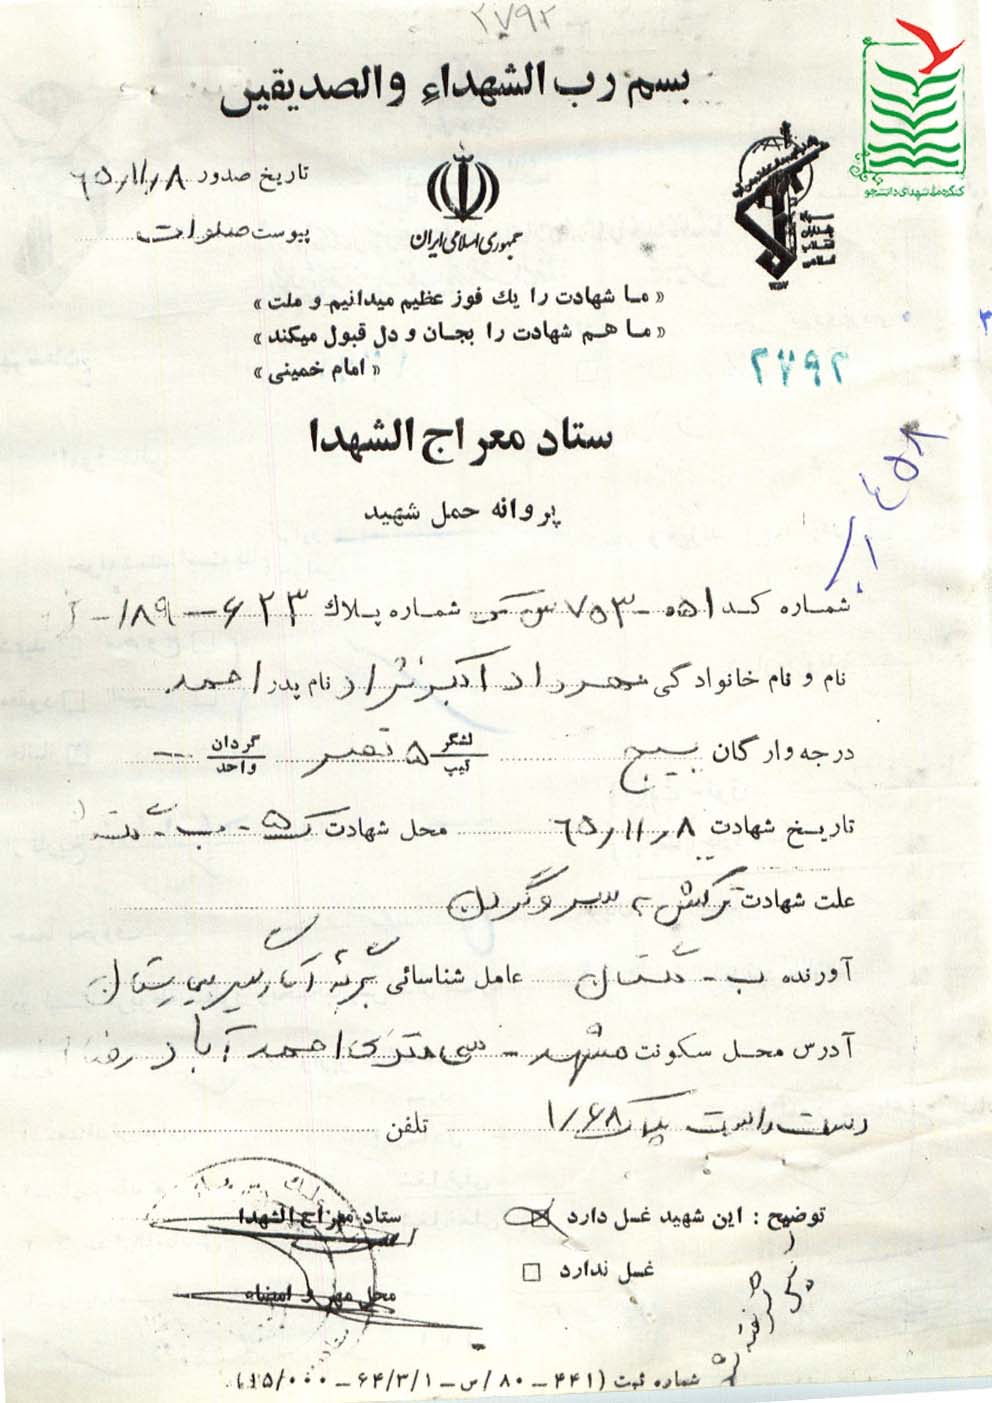 ۲۷۹۲
بسم رب الشهداء والصدیقین
تاریخ صدور ۶۵/۱۱/۸
پیوست صلوات
جمهوری اسلامی ایران
سپاه پاسداران انقلاب اسلامی
کنگره ملی شهدای دانشجو
« ما شهادت را یك فوز عظیم میدانیم و ملت »
« ما هم شهادت را بجان و دل قبول میکند »
« امام خمینی »
۲۷۹۲
ستاد معراج الشهدا
پروانه حمل شهید
شماره کد ۰۵۱-۷۵۳ شماره پلاك ۶۲۳-۱۸۹-
نام و نام خانوادگی مهرداد اکبرنژاد نام پدر احمد
درجه و ارگان بسیج لشگر تیپ ۵ نصر گردان واحد --
تاریخ شهادت ۶۵/۱۱/۸ محل شهادت ک ۵ -
علت شهادت ترکش به سر و گردن
آورنده عامل شناسائی بیمارستان
آدرس محل سکونت مشهد - سی متری احمدآباد رضا
دست راست پلاک ۱/۶۸ تلفن
توضیح : این شهید غسل دارد ☒ ستاد معراج الشهدا
غسل ندارد □ محل مهر و امضاء
شماره ثبت (۴۴۱ - ۸۰ /س - ۶۴/۳/۱ - ۱۵/۰۰۰)